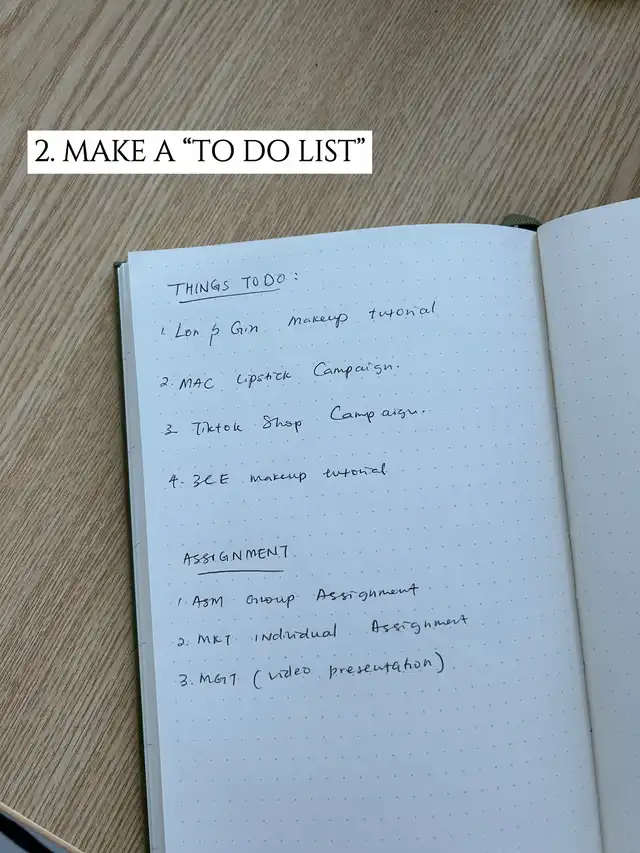 2. MAKE A “TO DO LIST”
THINGS TO DO :
1. Lon & Gin makeup tutorial
2. MAC Lipstick Campaign.
3. Tiktok Shop Campaign.
4. 3CE makeup tutorial
ASSIGNMENT
1. ASM Group Assignment
2. MKT individual Assignment
3. MGT (video presentation)